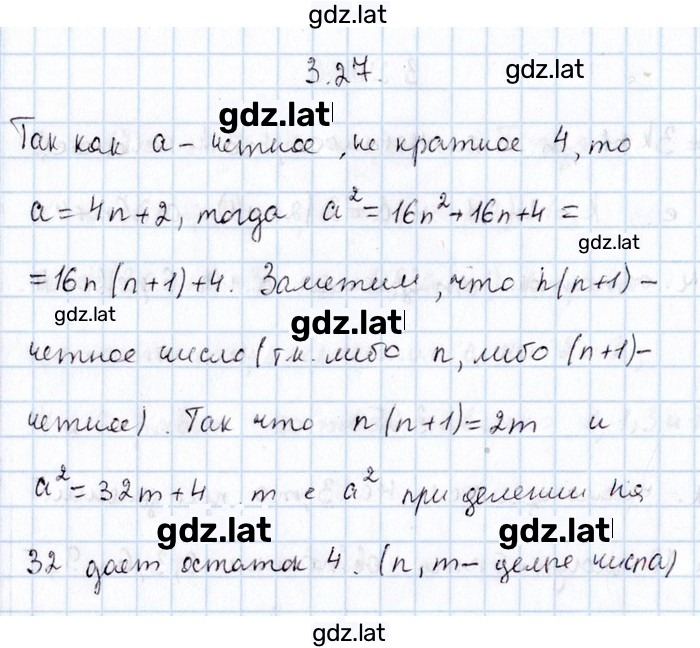 gdz.lat
3.27.
gdz.lat
gdz.lat
Так как a - четное, не кратное 4, то
a = 4n+2, тогда a² = 16n²+16n+4 =
gdz.lat
= 16n(n+1)+4. Заметим, что n(n+1) -
gdz.lat
gdz.lat
четное число (т.к. либо n, либо (n+1) -
четное). Так что n(n+1)=2m и
a² = 32m+4 т е a² при делении на
gdz.lat
gdz.lat
32 дает остаток 4. (n, m - целые числа)
gdz.lat